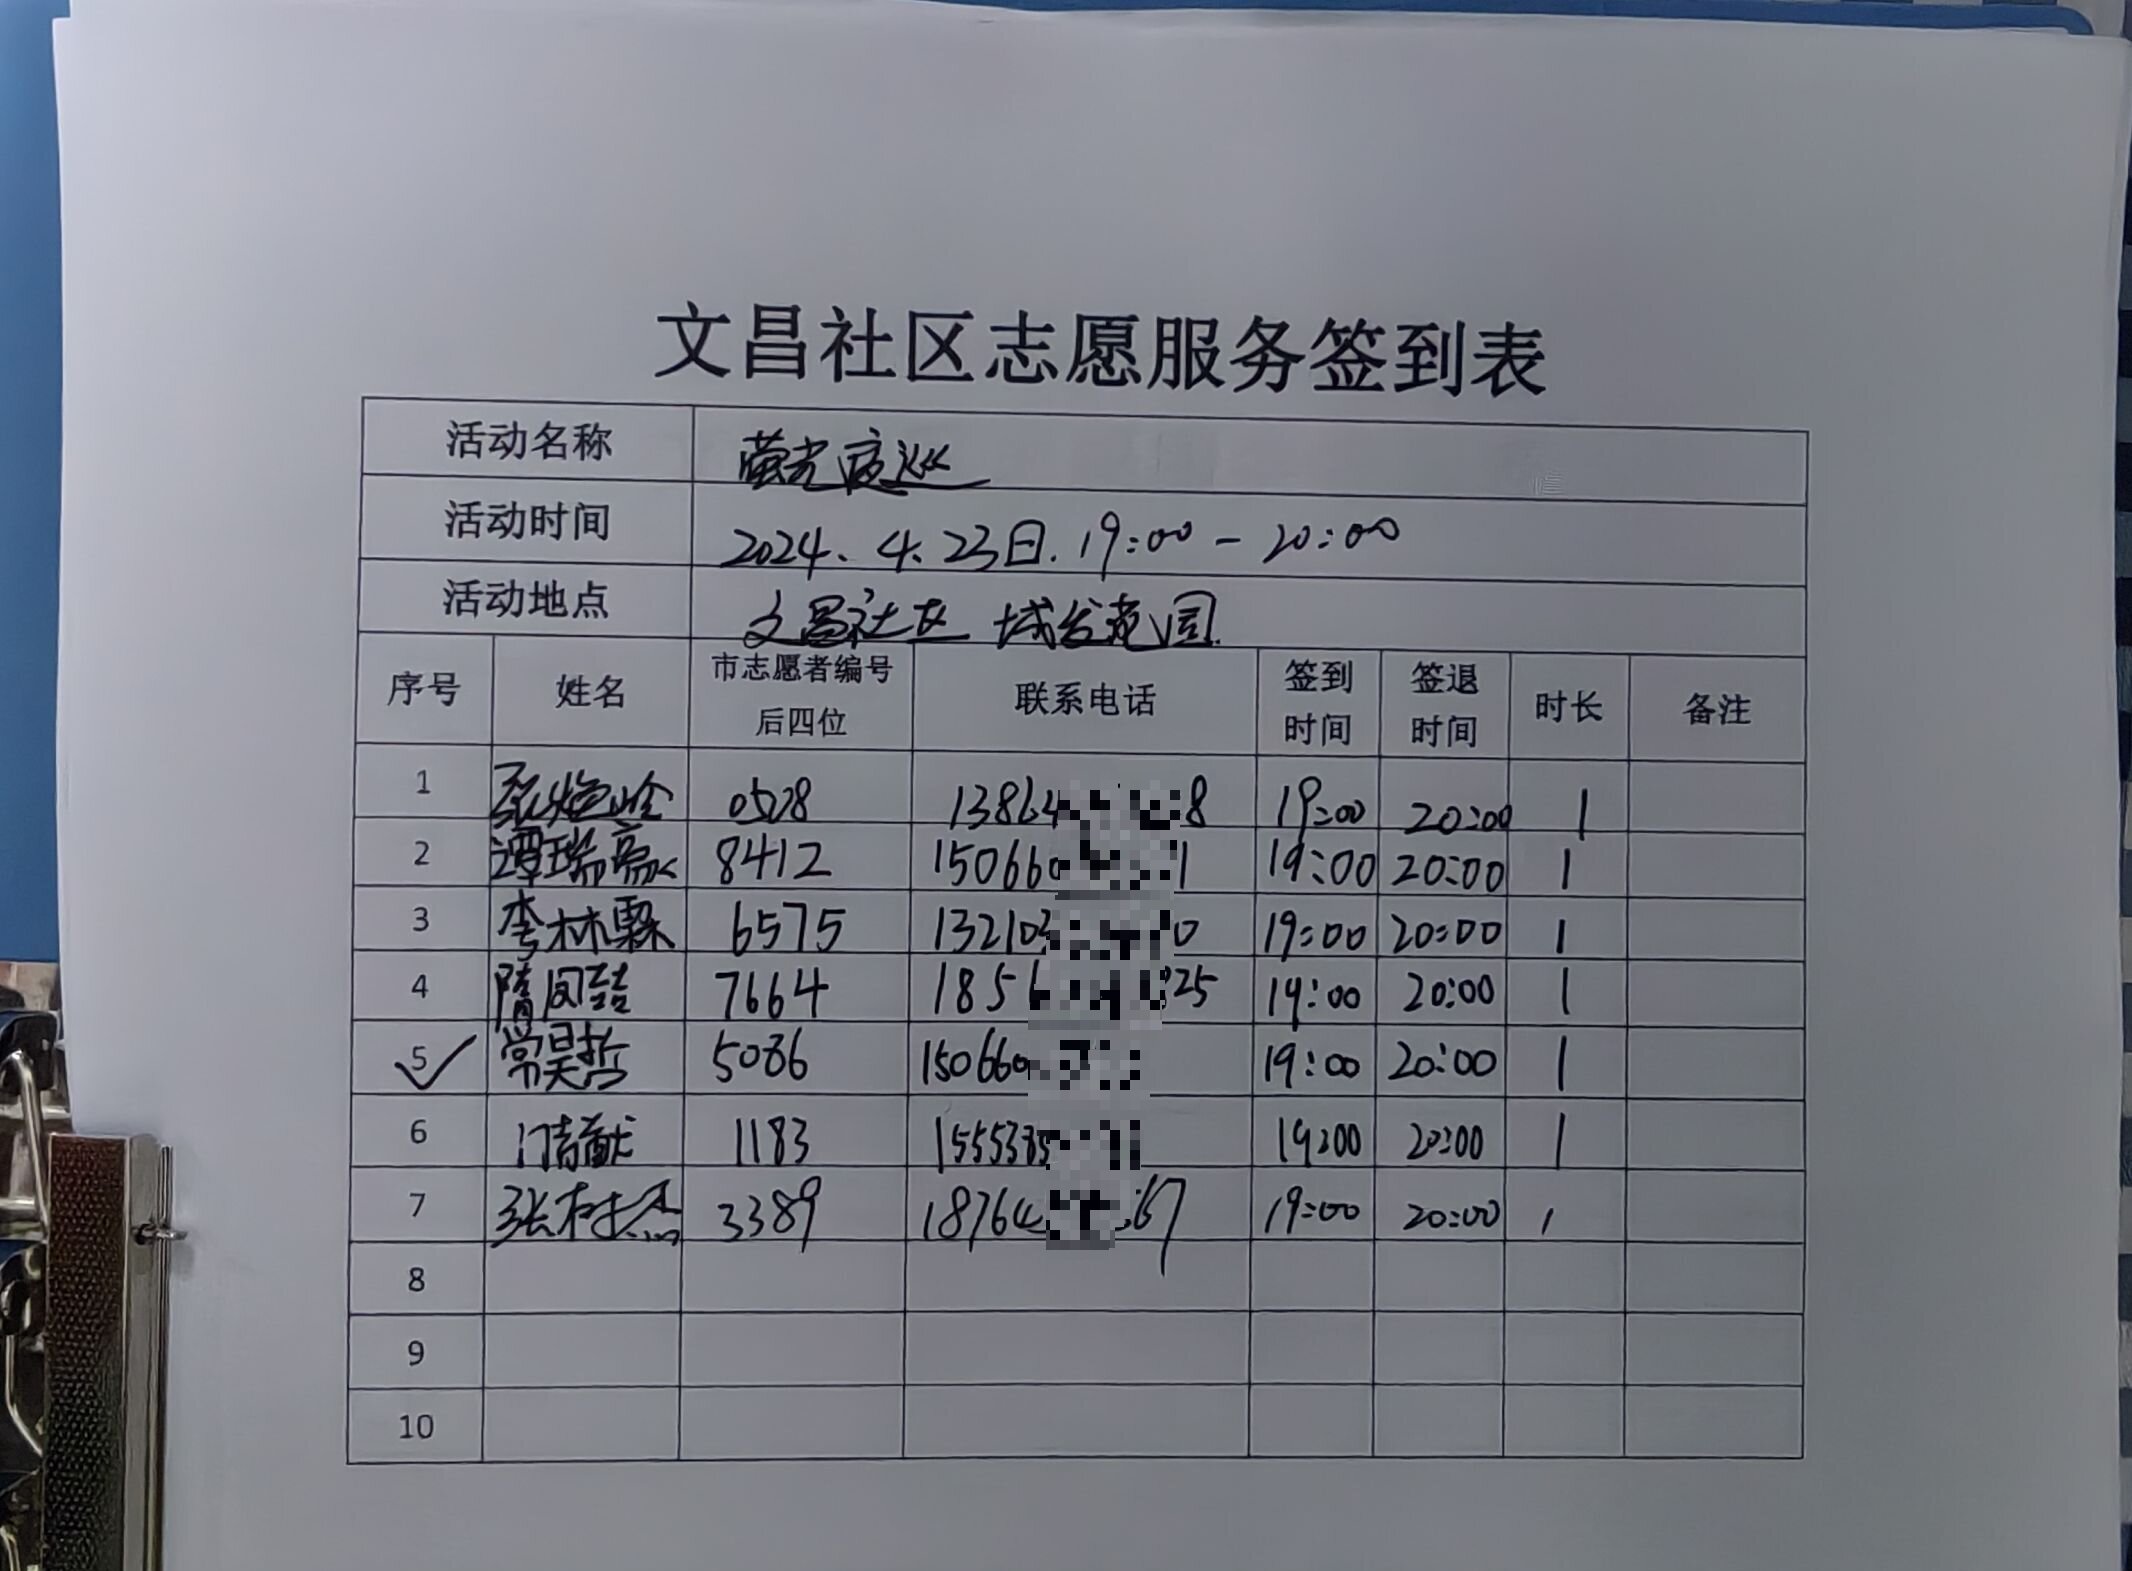 文昌社区志愿服务签到表
活动名称 萤光夜巡
活动时间 2024.4.23日.19:00-20:00
活动地点 文昌社区 城发范围
序号 姓名 市志愿者编号后四位 联系电话 签到时间 签退时间 时长 备注
1 0528 13864 8 19:00 20:00 1
2 谭瑞 8412 150660 1 19:00 20:00 1
3 李林霖 6575 132103 0 19:00 20:00 1
4 隋 7664 1856 25 19:00 20:00 1
5 常昊哲 5086 150660 19:00 20:00 1
6 1183 1555385 19:00 20:00 1
7 张树杰 3389 18764 67 19:00 20:00 1
8
9
10